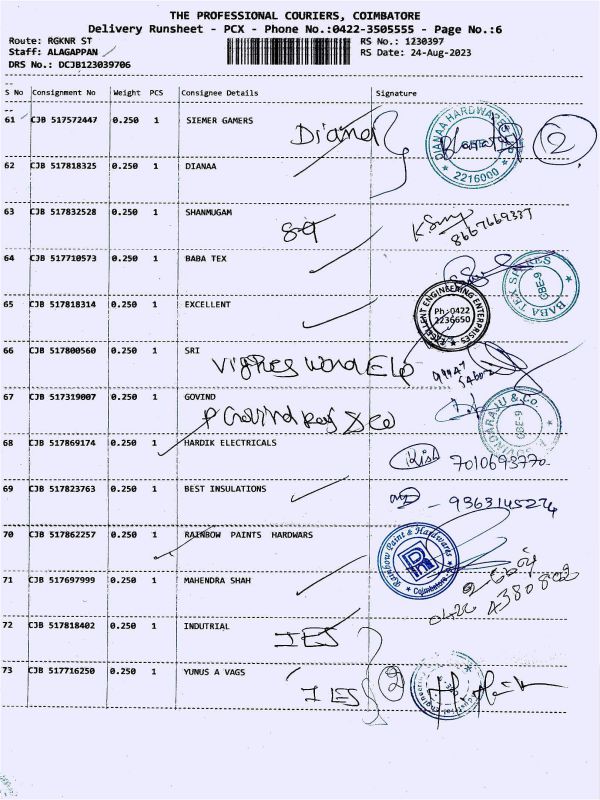 THE PROFESSIONAL COURIERS, COIMBATORE
Delivery Runsheet - PCX - Phone No.:0422-3505555 - Page No.:6
Route: RGKNR ST
RS No.: 1230397
Staff: ALAGAPPAN
RS Date: 24-Aug-2023
DRS No.: DCJB123039706
S No Consignment No Weight PCS Consignee Details Signature
61 CJB 517572447 0.250 1 SIEMER GAMERS
DIANAA HARDWARES
2216000
2
62 CJB 517818325 0.250 1 DIANAA
63 CJB 517832528 0.250 1 SHANMUGAM
8667669337
64 CJB 517710573 0.250 1 BABA TEX
BABA TEX
CBE-9
65 CJB 517818314 0.250 1 EXCELLENT
EXCELLENT ENGINEERING ENTERPRISES
Ph:0422
2236650
66 CJB 517800560 0.250 1 SRI
67 CJB 517319007 0.250 1 GOVIND
& Co
CBE-9
68 CJB 517869174 0.250 1 HARDIK ELECTRICALS
7010693770
69 CJB 517823763 0.250 1 BEST INSULATIONS
9363145274
70 CJB 517862257 0.250 1 RAINBOW PAINTS HARDWARS
Rainbow Paint & Hardwares
Coimbatore
71 CJB 517697999 0.250 1 MAHENDRA SHAH
0422 4380802
72 CJB 517818402 0.250 1 INDUTRIAL
IES
73 CJB 517716250 0.250 1 YUNUS A VAGS
IES
2